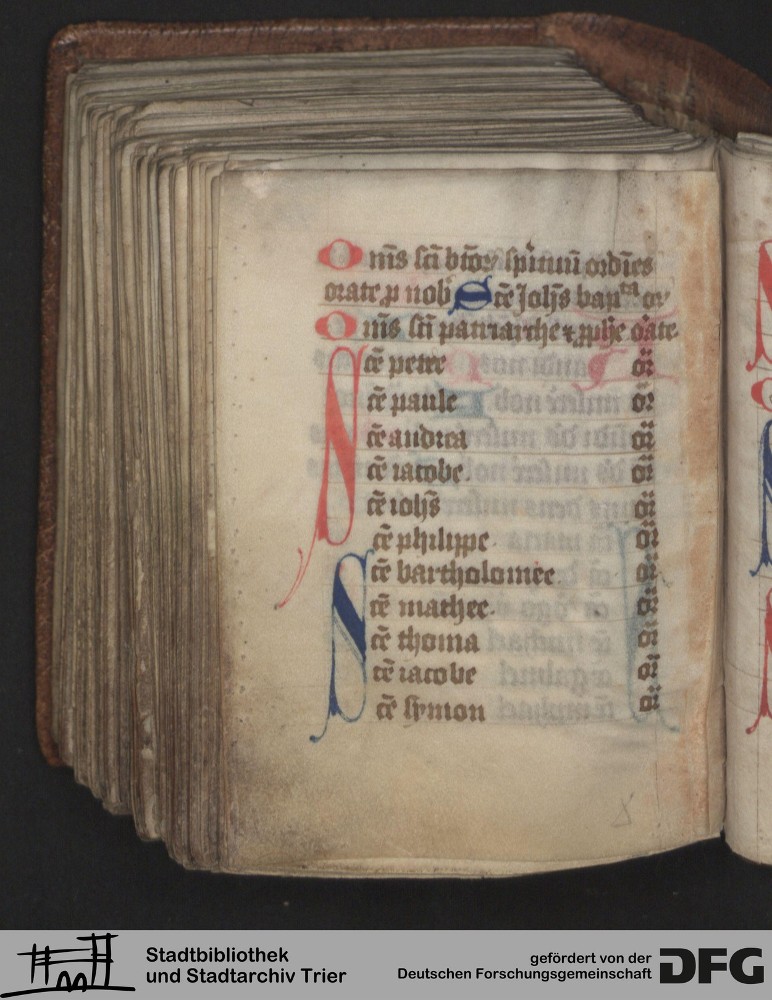 Om̅s sc̅i b̅to℞ spirituu̅ ordi̅es
orate p̱ nob̅ Sc̅e Joh̅s bapta or
Om̅s sc̅i patriarche ⁊ p̱phe orate
Sc̅e petre or
c̅e paule or
c̅e andrea or
c̅e iacobe or
c̅e ioh̅s or
c̅e philippe or
Sc̅e bartholomee or
c̅e mathee or
c̅e thoma or
c̅e iacobe or
c̅e symon or
Stadtbibliothek
und Stadtarchiv Trier
gefördert von der
Deutschen Forschungsgemeinschaft
DFG